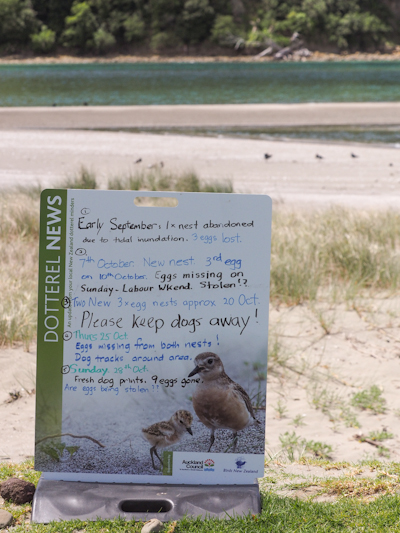 DOTTEREL NEWS
An update from your local New Zealand dotterel minders
①
Early September: 1x nest abandoned
due to tidal inundation. 3 eggs lost.
②
7th October. New nest. 3rd egg
on 10th October. Eggs missing on
Sunday - Labour Wkend. Stolen!?
③ Two New 3xegg nests approx 20 Oct.
Please keep dogs away!
④ Thurs 25 Oct
Eggs missing from both nests!
Dog tracks around area.
⑤ Sunday 28th Oct.
Fresh dog prints. 9 eggs gone.
Are eggs being stolen??
Auckland Council